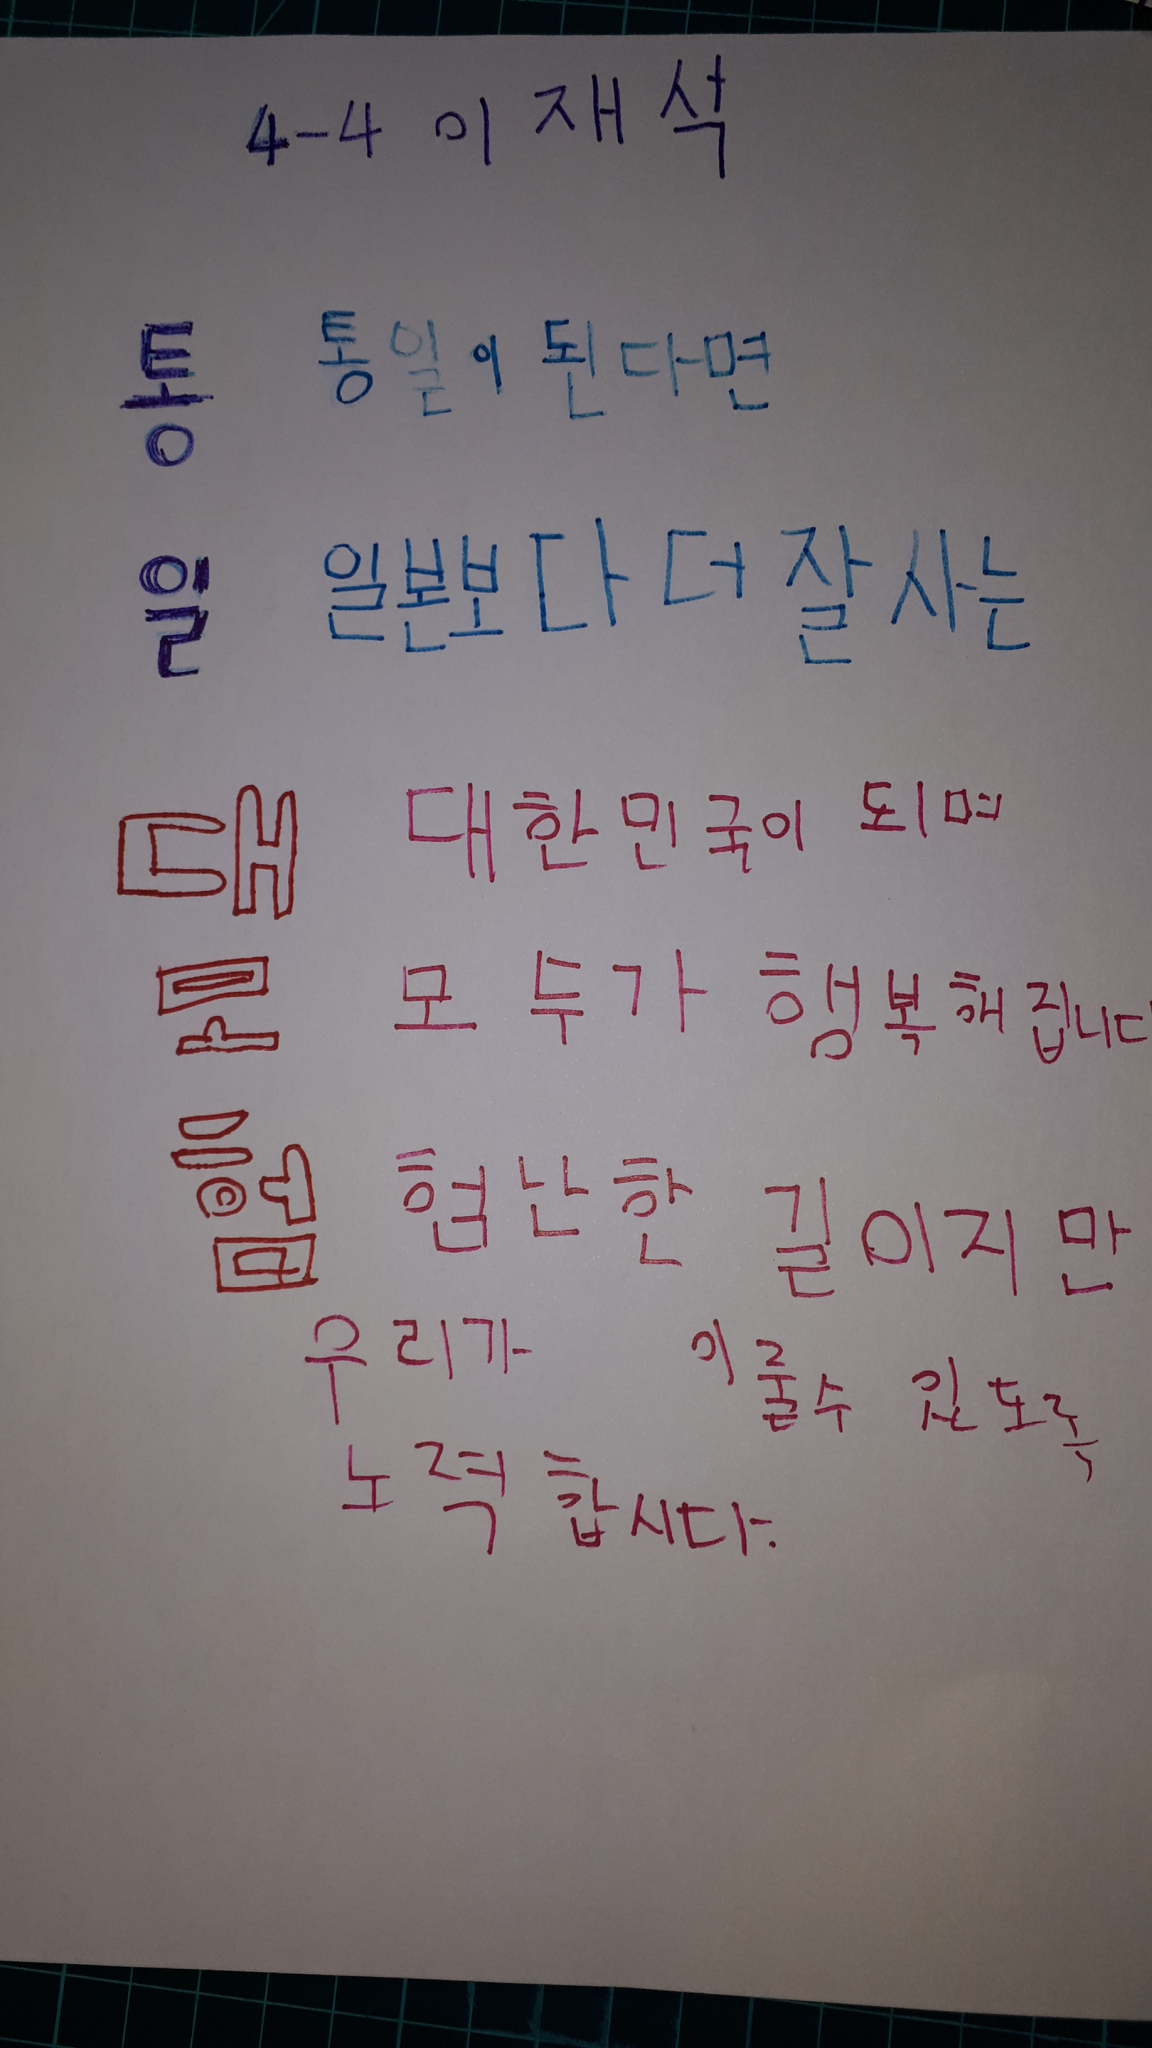 4-4 이재석
통 통일이 된다면
일 일본보다 더 잘 사는
대 대한민국이 되며
모 모두가 행복해집니다
험 험난한 길이지만
우리가 이룰수 있도록
노력 합시다.